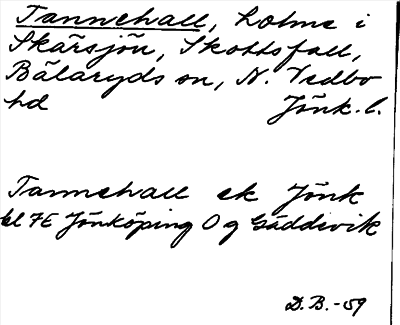 Tannehall, holme i
Skärsjön, Skottsfall,
Bälaryds sn, N. Vedbo
hd Jönk. l.
Tannehall ek Jönk
bl 7E Jönköping O g Gäddevik
D.B. -59